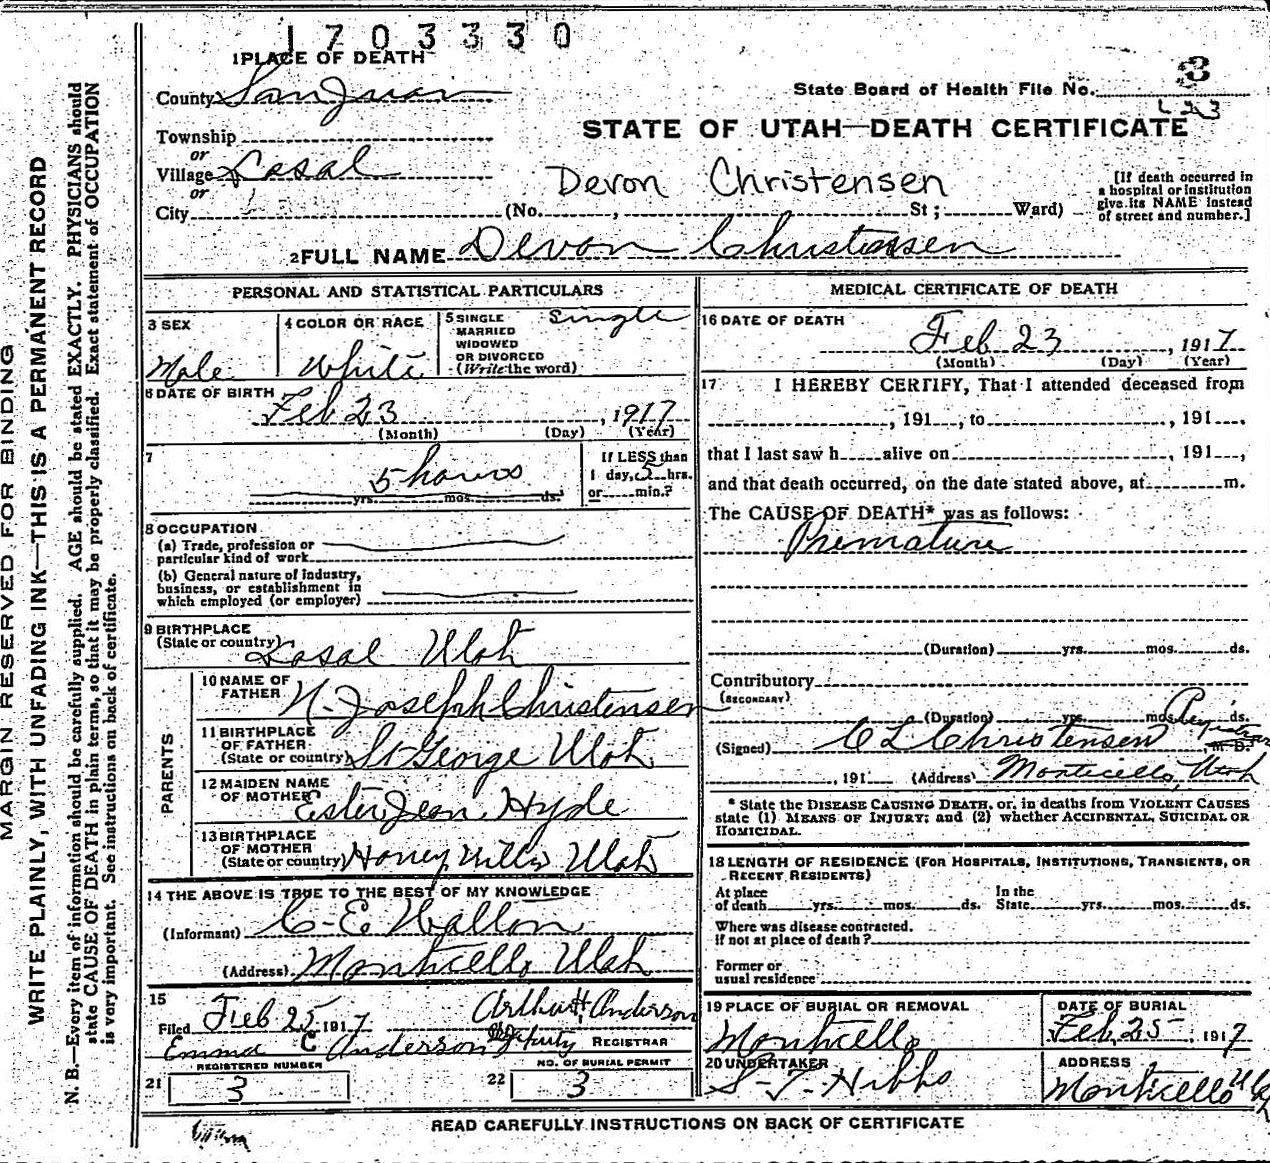 1703330
1 PLACE OF DEATH
County San Juan
State Board of Health File No. 3
Township
STATE OF UTAH—DEATH CERTIFICATE
or
Village Lasal
or
Devon Christensen
[If death occurred in a hospital or institution give its NAME instead of street and number.]
City (No. , St ; Ward)
2 FULL NAME Devon Christensen
PERSONAL AND STATISTICAL PARTICULARS
3 SEX
Male
4 COLOR OR RACE
White
5 SINGLE MARRIED WIDOWED OR DIVORCED (Write the word)
Single
6 DATE OF BIRTH
Feb 23, 1917
(Month) (Day) (Year)
7
5 hours
yrs. mos. ds.
If LESS than
1 day, 5 hrs.
or min.?
8 OCCUPATION
(a) Trade, profession or
particular kind of work
(b) General nature of industry,
business, or establishment in
which employed (or employer)
9 BIRTHPLACE
(State or country) Lasal Utah
PARENTS
10 NAME OF
FATHER N. Joseph Christensen
11 BIRTHPLACE
OF FATHER
(State or country) St George Utah
12 MAIDEN NAME
OF MOTHER Ester Jean Hyde
13 BIRTHPLACE
OF MOTHER
(State or country) Utah
14 THE ABOVE IS TRUE TO THE BEST OF MY KNOWLEDGE
(Informant) C. E. Walton
(Address) Monticello Utah
15
Filed Feb 25, 1917 Arthur H. Anderson
Emma C Anderson Deputy REGISTRAR
REGISTERED NUMBER
21 3
NO. OF BURIAL PERMIT
22 3
MEDICAL CERTIFICATE OF DEATH
16 DATE OF DEATH
Feb 23, 1917
(Month) (Day) (Year)
17 I HEREBY CERTIFY, That I attended deceased from
, 191 , to , 191 .
that I last saw h alive on , 191 ,
and that death occurred, on the date stated above, at m.
The CAUSE OF DEATH* was as follows:
Premature
(Duration) yrs. mos. ds.
Contributory
(SECONDARY)
(Duration) yrs. mos. ds.
(Signed) C L Christensen Registrar M. D.
, 191 (Address) Monticello, Utah
* State the DISEASE CAUSING DEATH, or, in deaths from VIOLENT CAUSES
state (1) MEANS OF INJURY; and (2) whether ACCIDENTAL, SUICIDAL OR
HOMICIDAL.
18 LENGTH OF RESIDENCE (FOR HOSPITALS, INSTITUTIONS, TRANSIENTS, OR
RECENT RESIDENTS)
At place In the
of death yrs. mos. ds. State yrs. mos. ds.
Where was disease contracted.
if not at place of death?
Former or
usual residence
19 PLACE OF BURIAL OR REMOVAL
Monticello
DATE OF BURIAL
Feb. 25 1917
20 UNDERTAKER
S. T. Hibbs
ADDRESS
Monticello Utah
READ CAREFULLY INSTRUCTIONS ON BACK OF CERTIFICATE
MARGIN RESERVED FOR BINDING
WRITE PLAINLY, WITH UNFADING INK—THIS IS A PERMANENT RECORD
N. B.—Every item of information should be carefully supplied. AGE should be stated EXACTLY. PHYSICIANS should
state CAUSE OF DEATH in plain terms, so that it may be properly classified. Exact statement of OCCUPATION
is very important. See instructions on back of certificate.